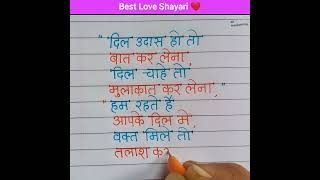 Best Love Shayari ❤️
" दिल उदास हो तो
बात कर लेना,
"दिल चाहे तो
मुलाकात कर लेना,"
"हम रहते हैं
आपके दिल मे,
वक्त मिले तो
तलाश कर